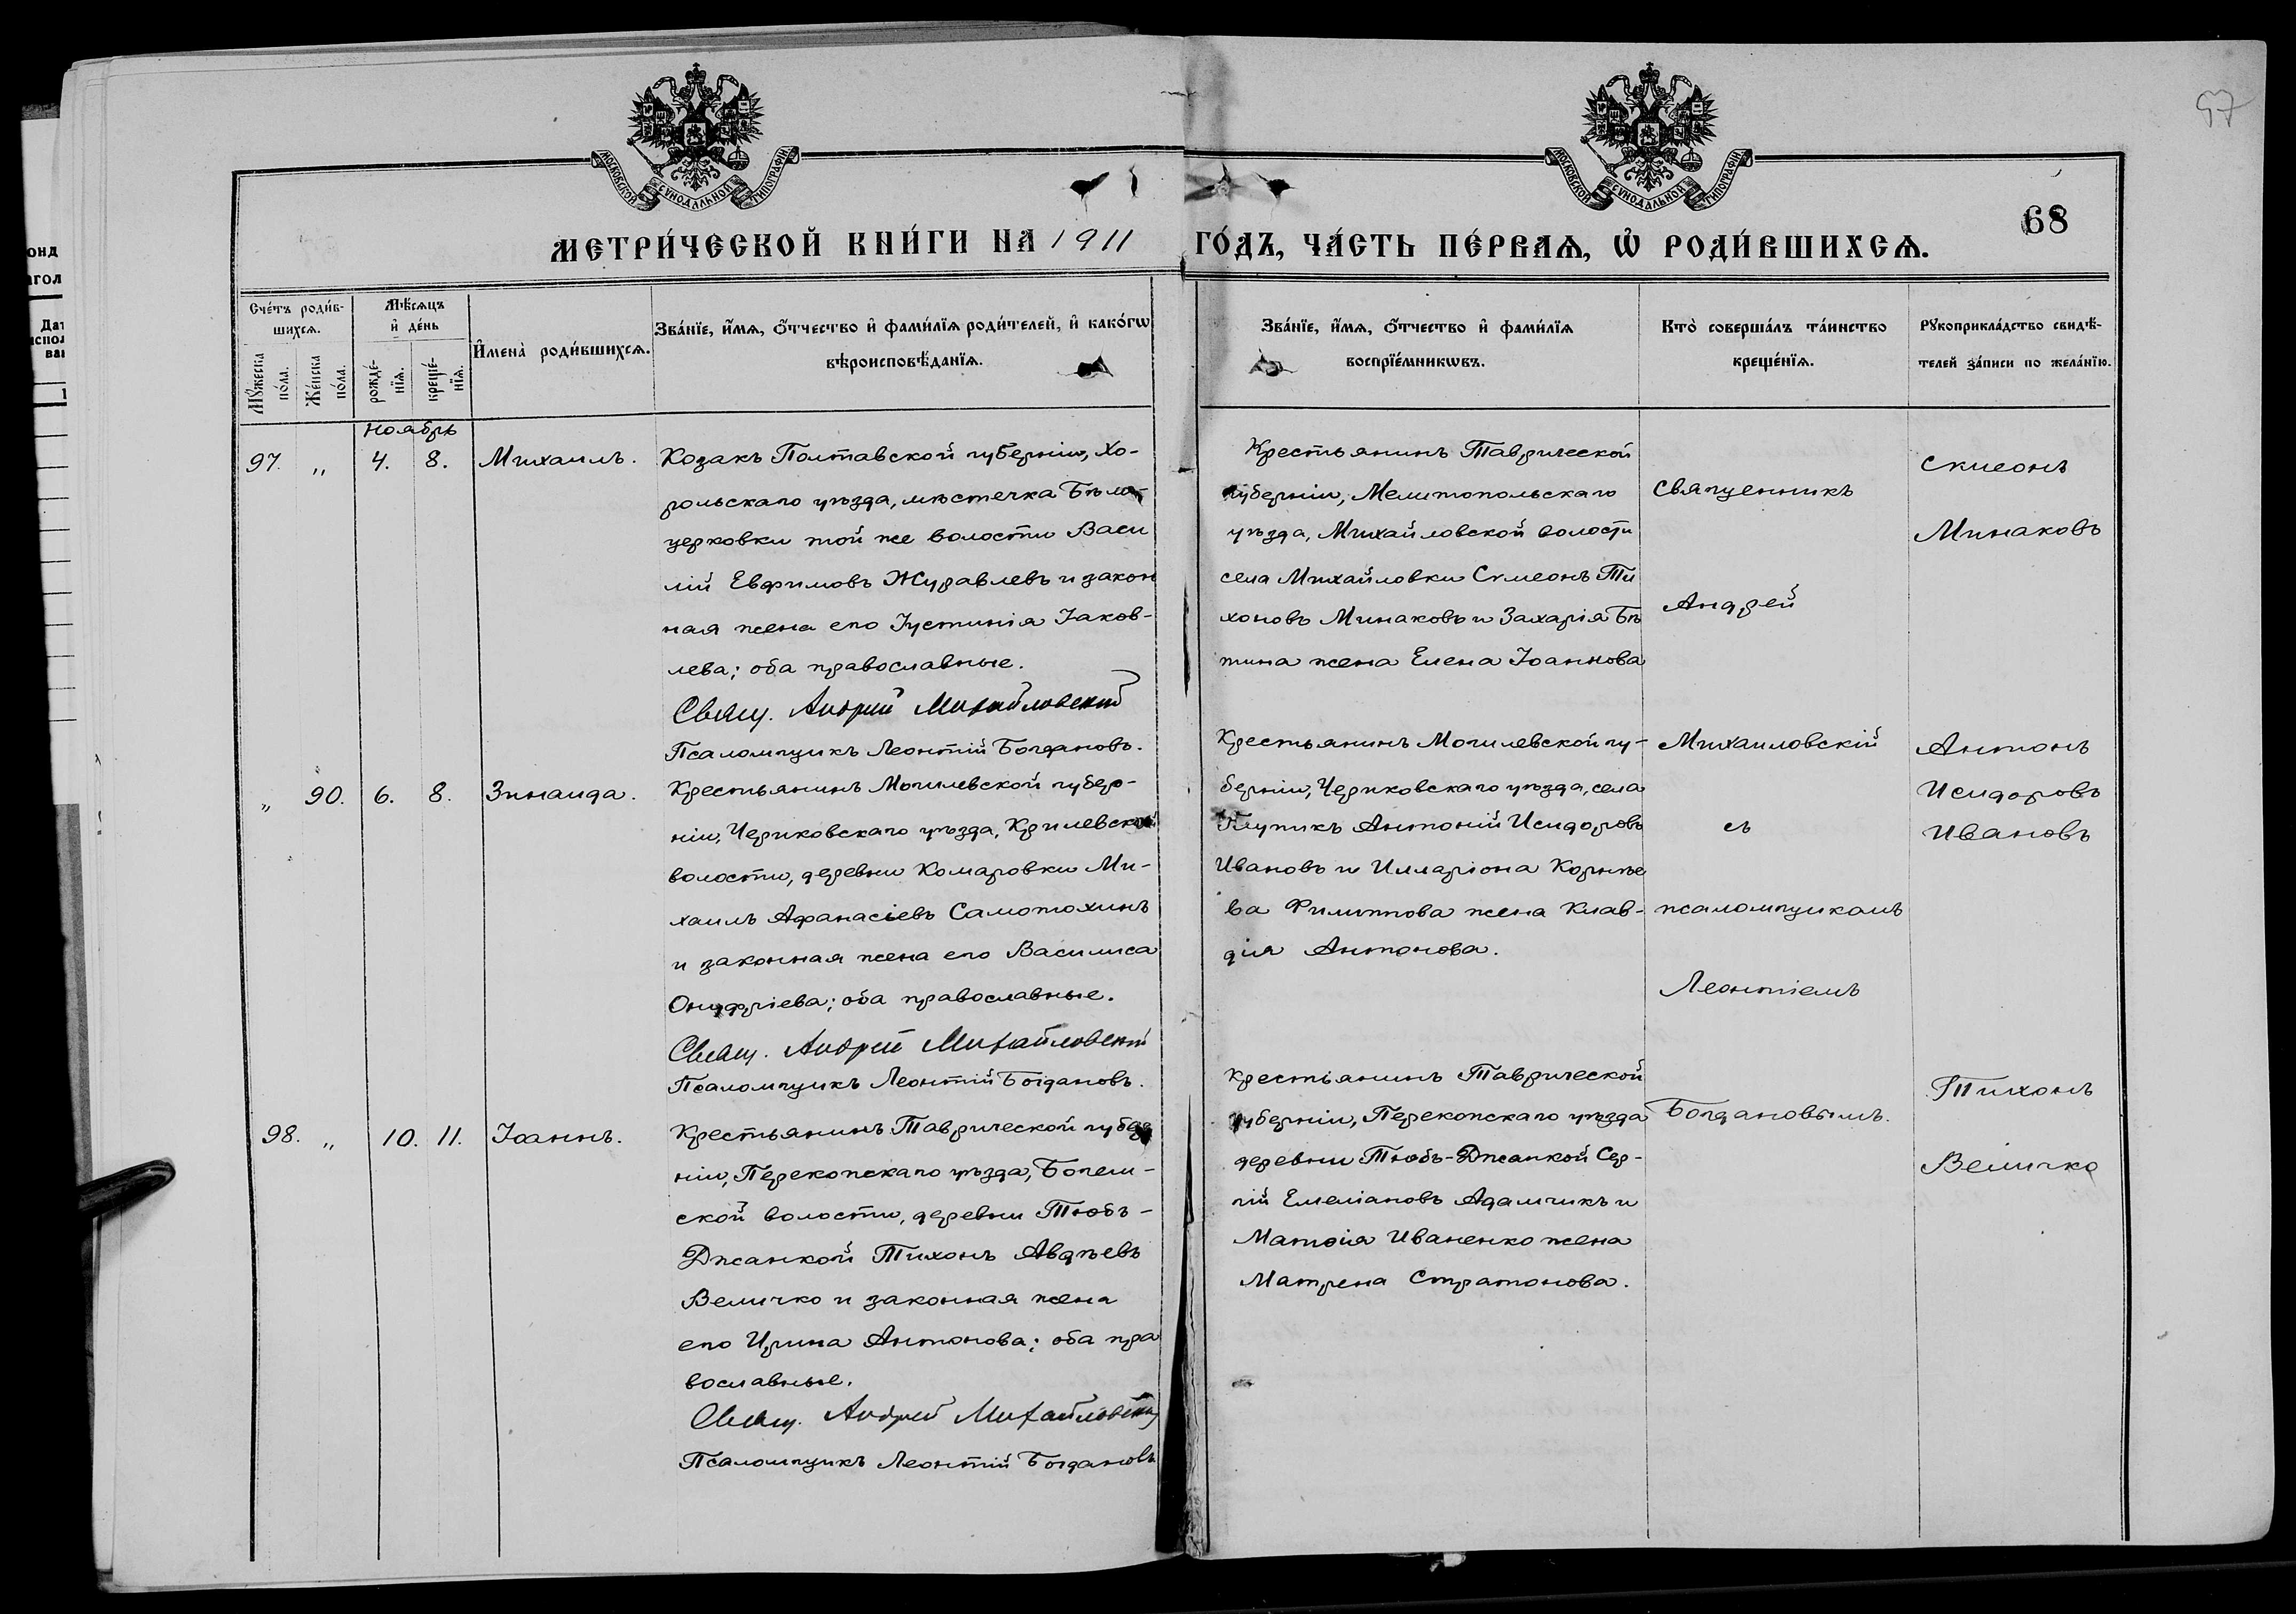 97
МОСКОВСКОЙ СѴНОДАЛЬНОЙ ТИПОГРАФІИ
МОСКОВСКОЙ СѴНОДАЛЬНОЙ ТИПОГРАФІИ
68
МЕТРИ́ЧЕСКОЙ КНИ́ГИ НА 1911 ГО́ДЪ, ЧА́СТЬ ПЕ́РВАѦ, Ѡ҆ РОДИ́ВШИХСѦ.
Сче́тъ роди́в-
шихсѧ.
Мꙋ́жеска по́ла.
Же́нска по́ла.
Мѣ́сѧцъ
и҆ де́нь
рожде́-
нїѧ.
креще́-
нїѧ.
И҆мена̀ роди́вшихсѧ.
Зва́нїе, и҆́мѧ, ѻ҆́тчество и҆ фами́лїѧ роди́телей, и҆ како́гѡ
вѣроисповѣ́данїѧ.
Зва́нїе, и҆́мѧ, ѻ҆́тчество и҆ фами́лїѧ
воспрїе́мникѡвъ.
Кто̀ соверша́лъ та́инство
креще́нїѧ.
Рꙋкоприкла́дство свидѣ́-
телей за́писи по жела́нїю.
Ноябрь
97. „ 4. 8. Михаилъ.
Козакъ Полтавской губерніи, Хо-
рольскаго уѣзда, мѣстечка Бѣло-
церковки той же волости Васи
лій Евфимовъ Журавлевъ и закон
ная жена его Іустинія Іаков-
лева; оба православные.
Свящ. Андрей Михайловскій
Псаломщикъ Леонтій Богдановъ.
Крестьянинъ Таврической
губерніи, Мелитопольскаго
уѣзда, Михайловской волости
села Михайловки Симеонъ Ти
хоновъ Минаковъ и Захарія Бѣ
тина жена Елена Іоаннова
Священникъ
Андрей
Михаиловскій
съ
псаломщикомъ
Леонтіемъ
Богдановымъ.
Симеонъ
Минаковъ
„ 90. 6. 8. Зинаида.
Крестьянинъ Могилевской губер-
ніи, Чериковскаго уѣзда, Крилевской
волости, деревни Комаровки Ми-
хаилъ Афанасіевъ Самотохинъ
и законная жена его Василиса
Онуфріева; оба православные.
Свящ. Андрей Михайловскій
Псаломщикъ Леонтій Богдановъ.
Крестьянинъ Могилевской гу-
берніи, Чериковскаго уѣзда, села
Антоній Исидоровъ
Ивановъ и Илларіона Корнѣе
ва Филиппова жена Клав-
дія Антонова.
Антонъ
Исидоровъ
Ивановъ
98. „ 10. 11. Іоаннъ.
Крестьянинъ Таврической губер
ніи, Перекопскаго уѣзда, Богем-
ской волости, деревни Тюбъ-
Джанкой Тихонъ Авдѣевъ
Величко и законная жена
его Ирина Антонова; оба пра
вославные.
Свящ. Андрей Михайловскій
Псаломщикъ Леонтій Богдановъ
Крестіянинъ Таврической
губерніи, Перекопскаго уѣзда
деревни Тюбъ-Джанкой Сер-
гій Емеліановъ Адамчикъ и
Матѳія Иваненко жена
Матрена Стратонова.
Тихонъ
Величко